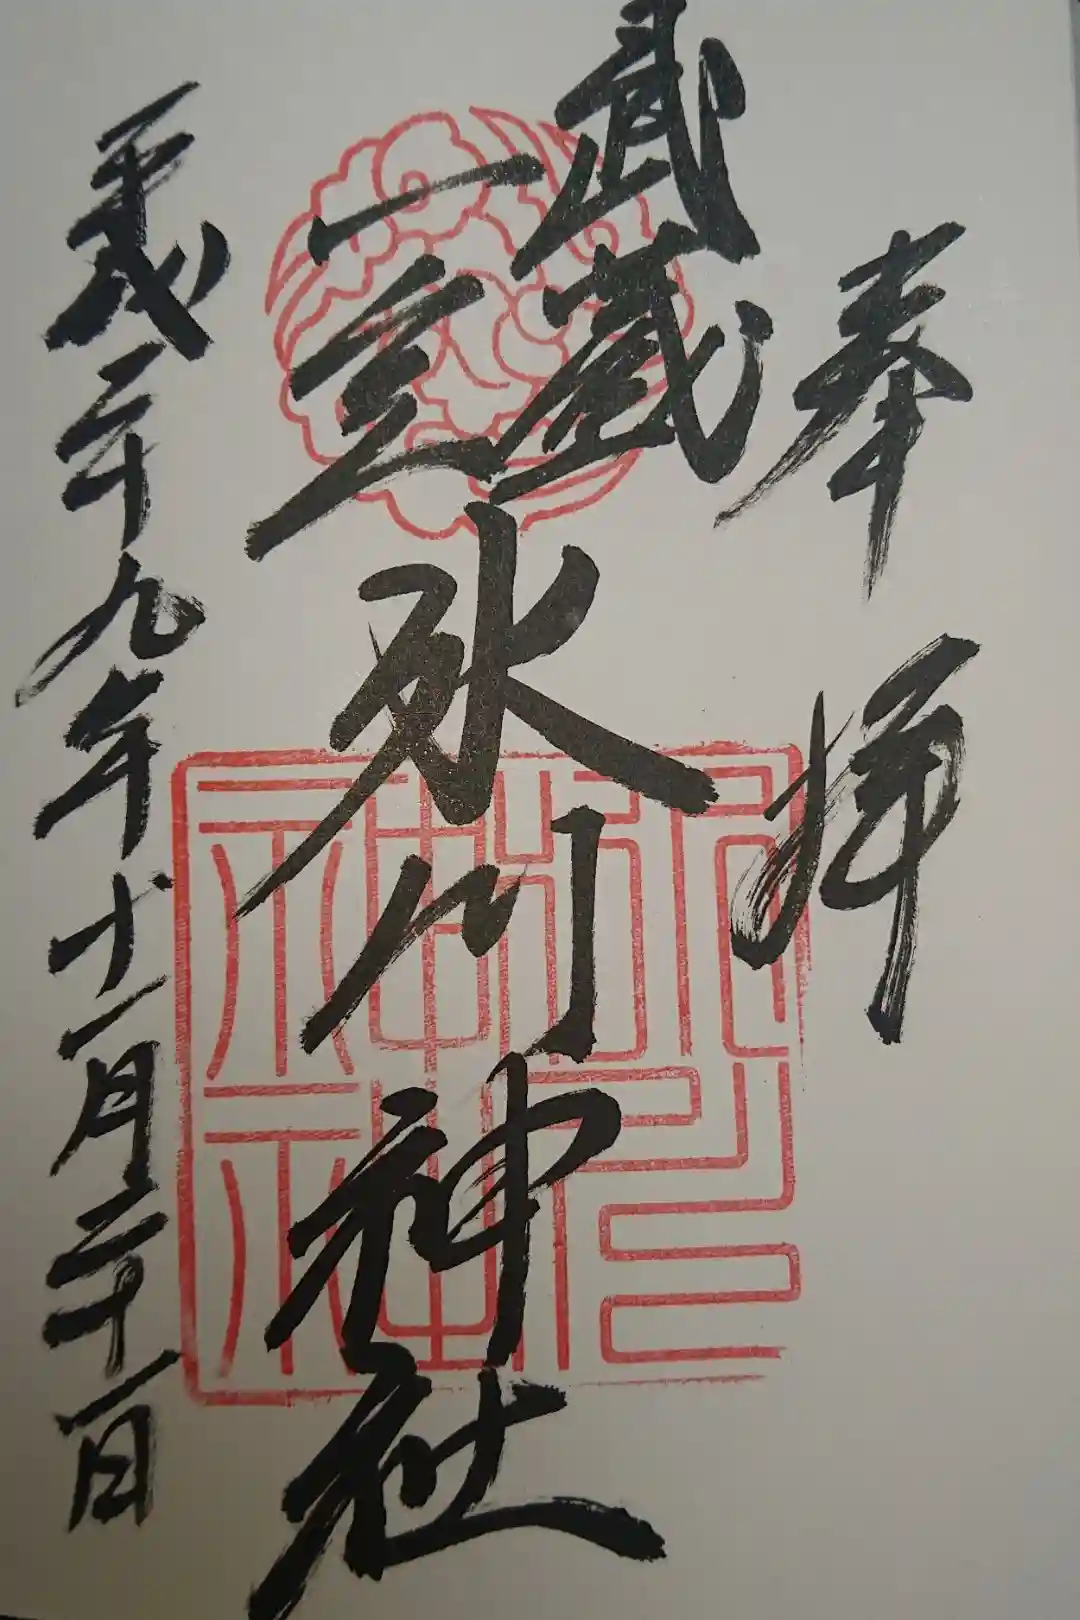 奉拝
武蔵
一宮
氷川神社
平成二十九年十一月二十一日